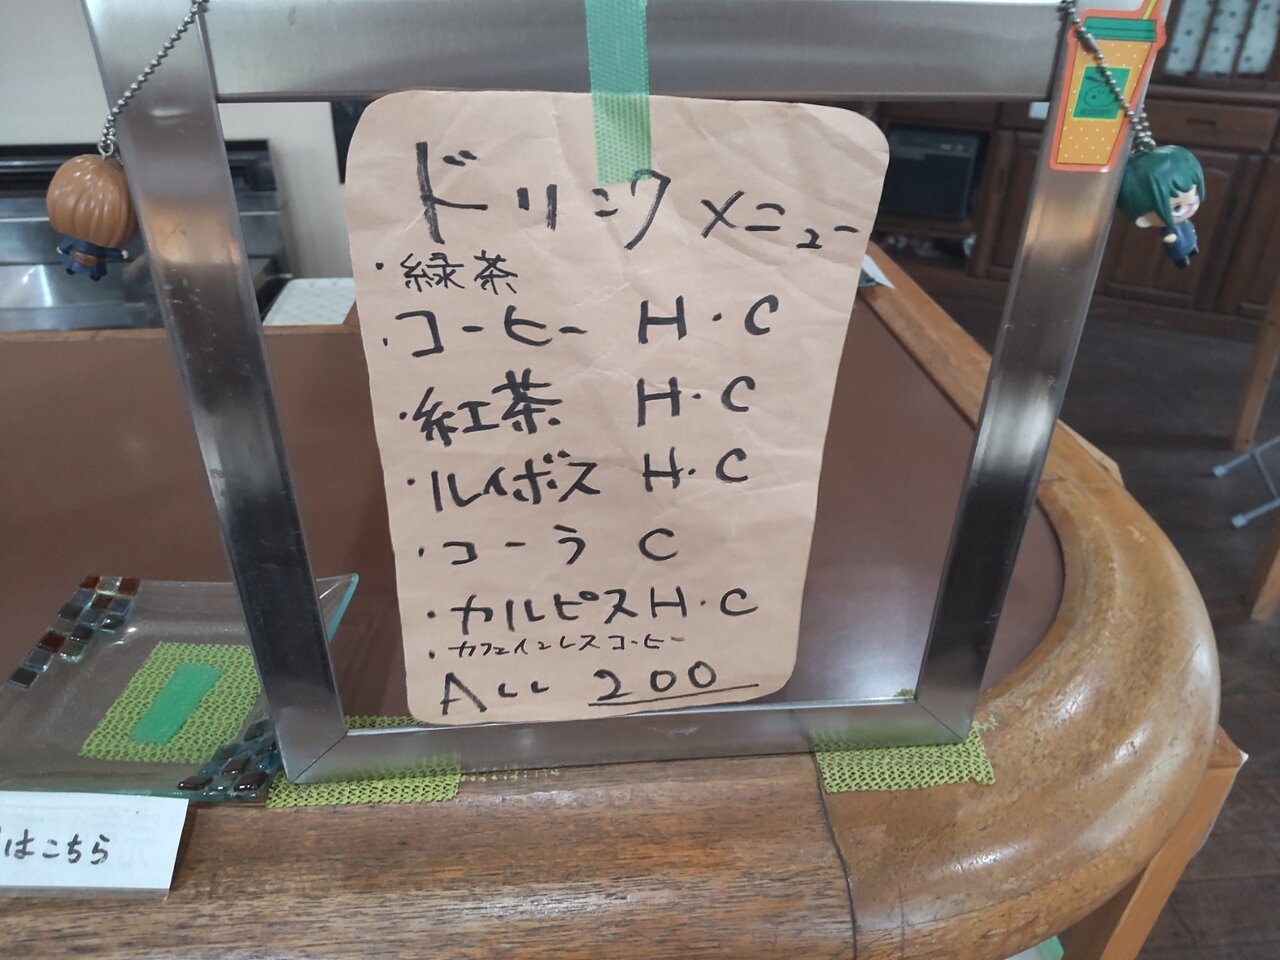 ドリンクメニュー
・緑茶
・コーヒー H・C
・紅茶 H・C
・ルイボス H・C
・コーラ C
・カルピス H・C
・カフェインレスコーヒー
ALL 200
はこちら